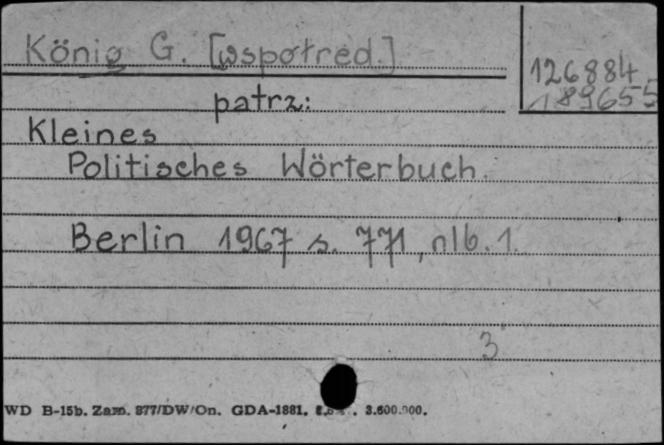 König G. [współred.]
126884
189655
patrz:
Kleines
Politisches Wörterbuch.
Berlin 1967 s. 771, nlb. 1.
3
WD B-15b. Zam. 877/DW/On. GDA-1881. 3.600.000.